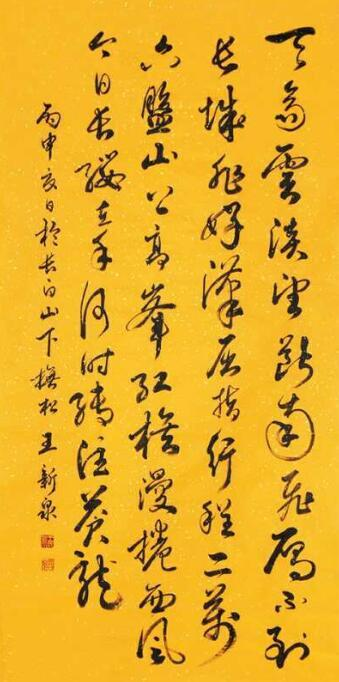 天高雲淡望斷南飛雁不到
長城非好漢屈指行程二萬
六盤山上高峰紅旗漫捲西風
今日長纓在手何時縛住蒼龍
丙申夏日於長白山下撫松王新泉